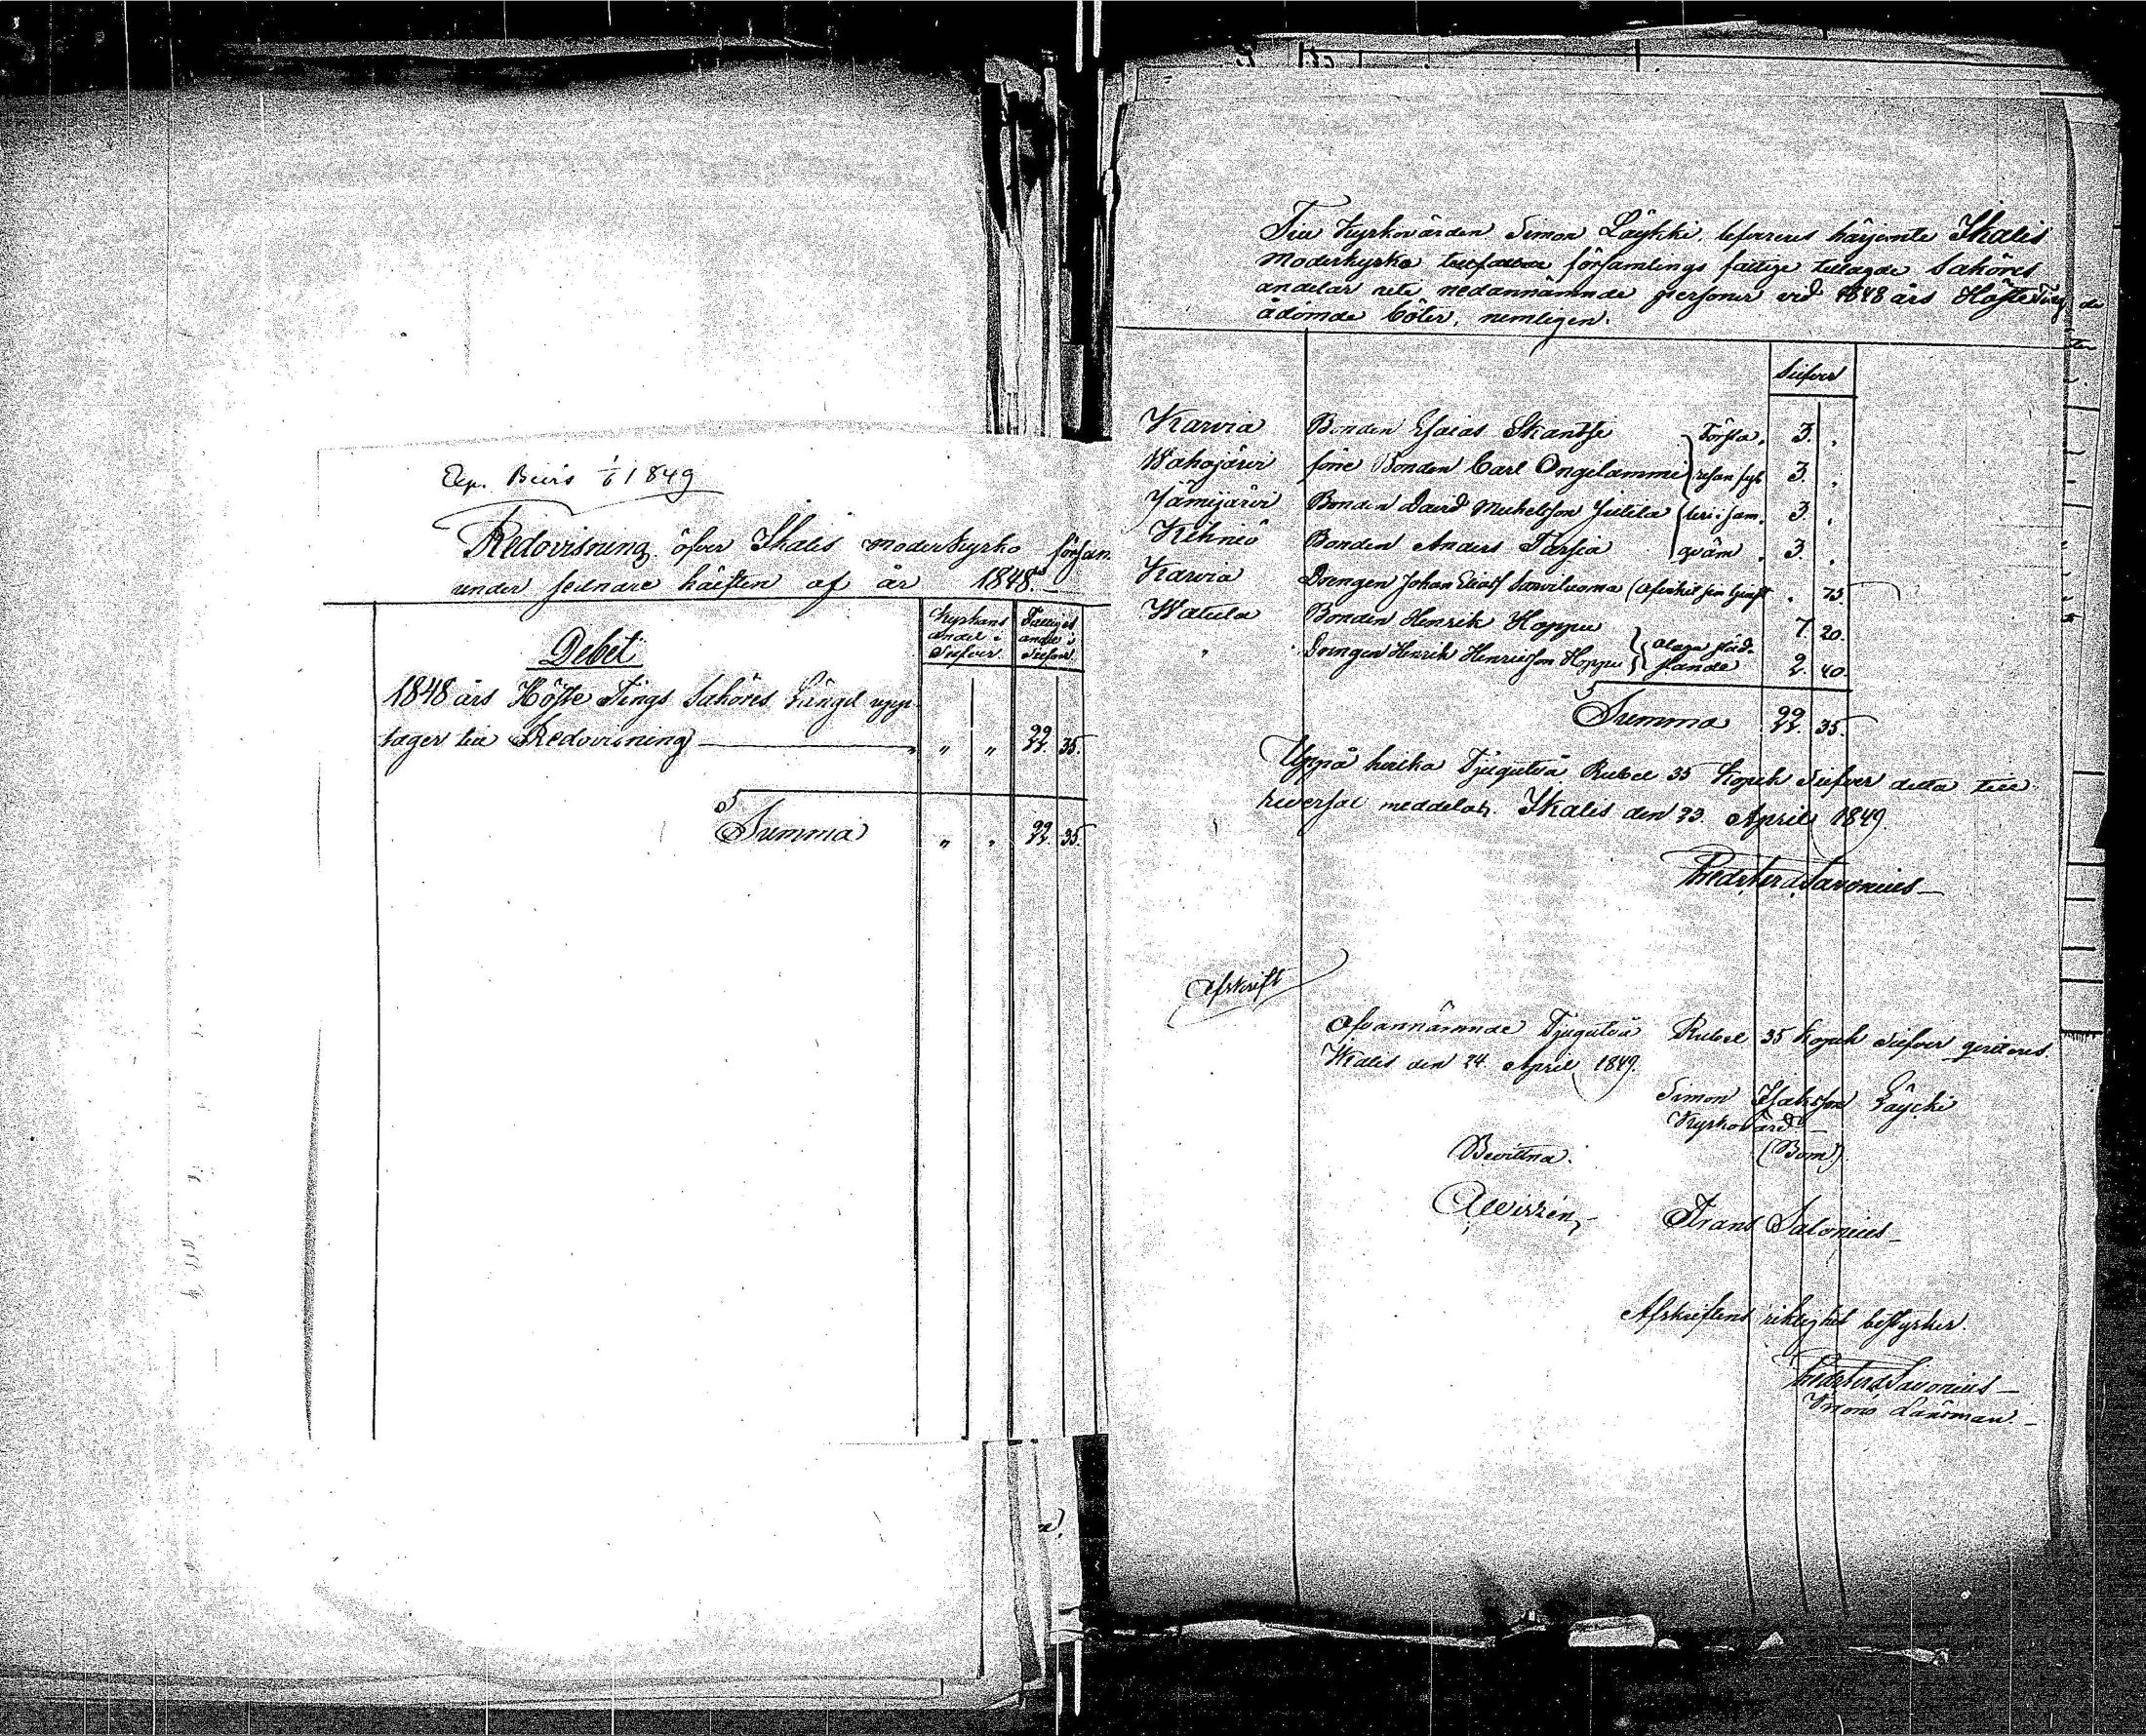 Exp. Beirs 1/6 1849
Redovisning öfver Ikalis moderkyrko försam
under sednare hälften af år 1848.
Debet
Kyrkans andel i Silfver
Fattiges andel i Silfver
1848 års Höste Tings Sakören Längd upp-
tager till Redovisning " " 22. 35.
Summa " " 22. 35.
Till Kyrkovärden Simon Läykki, lefvereres härjemte Ikalis
Moderkyrko församlings fattige tillagde Saköres
andelar utu nedannämnde personer vid 1848 års Höste Ting
ådömde böter, nemligen.
Silfver
Karvia Bonden Esaias Skantse Första 3. "
Wahojärvi förre Bonden Carl Ongilammi resan fyl 3. "
Jämijärvi Bonden David Michelsson Juttila leri i sam 3. "
Kihniö Bonden Anders Tarsia qväm 3. "
Karvia Drengen Johan Eliasf Sarviluoma " 75.
Watula Bonden Henrik Hoppu 7. 20.
" Drengen Henrik Henricsson Hoppu slående 2. 40.
Summa 22. 35.
Uppå hvilka Tjugutvå Rubel 35 Kopek Silfver detta till
reversal meddelas. Ikalis den 23. April 1849.
Savonius
Afskrift
Ofvannämnde Tjugutvå Rubel 35 Kopek Silfver qvitteras.
Ikalis den 24. April 1849.
Simon Isaksson Läycki
Kyrkovärd
(Bom)
Bevittna.
Frans Salonius
Afskriftens riktighet bestyrker.
Savonius
Krono Länsman